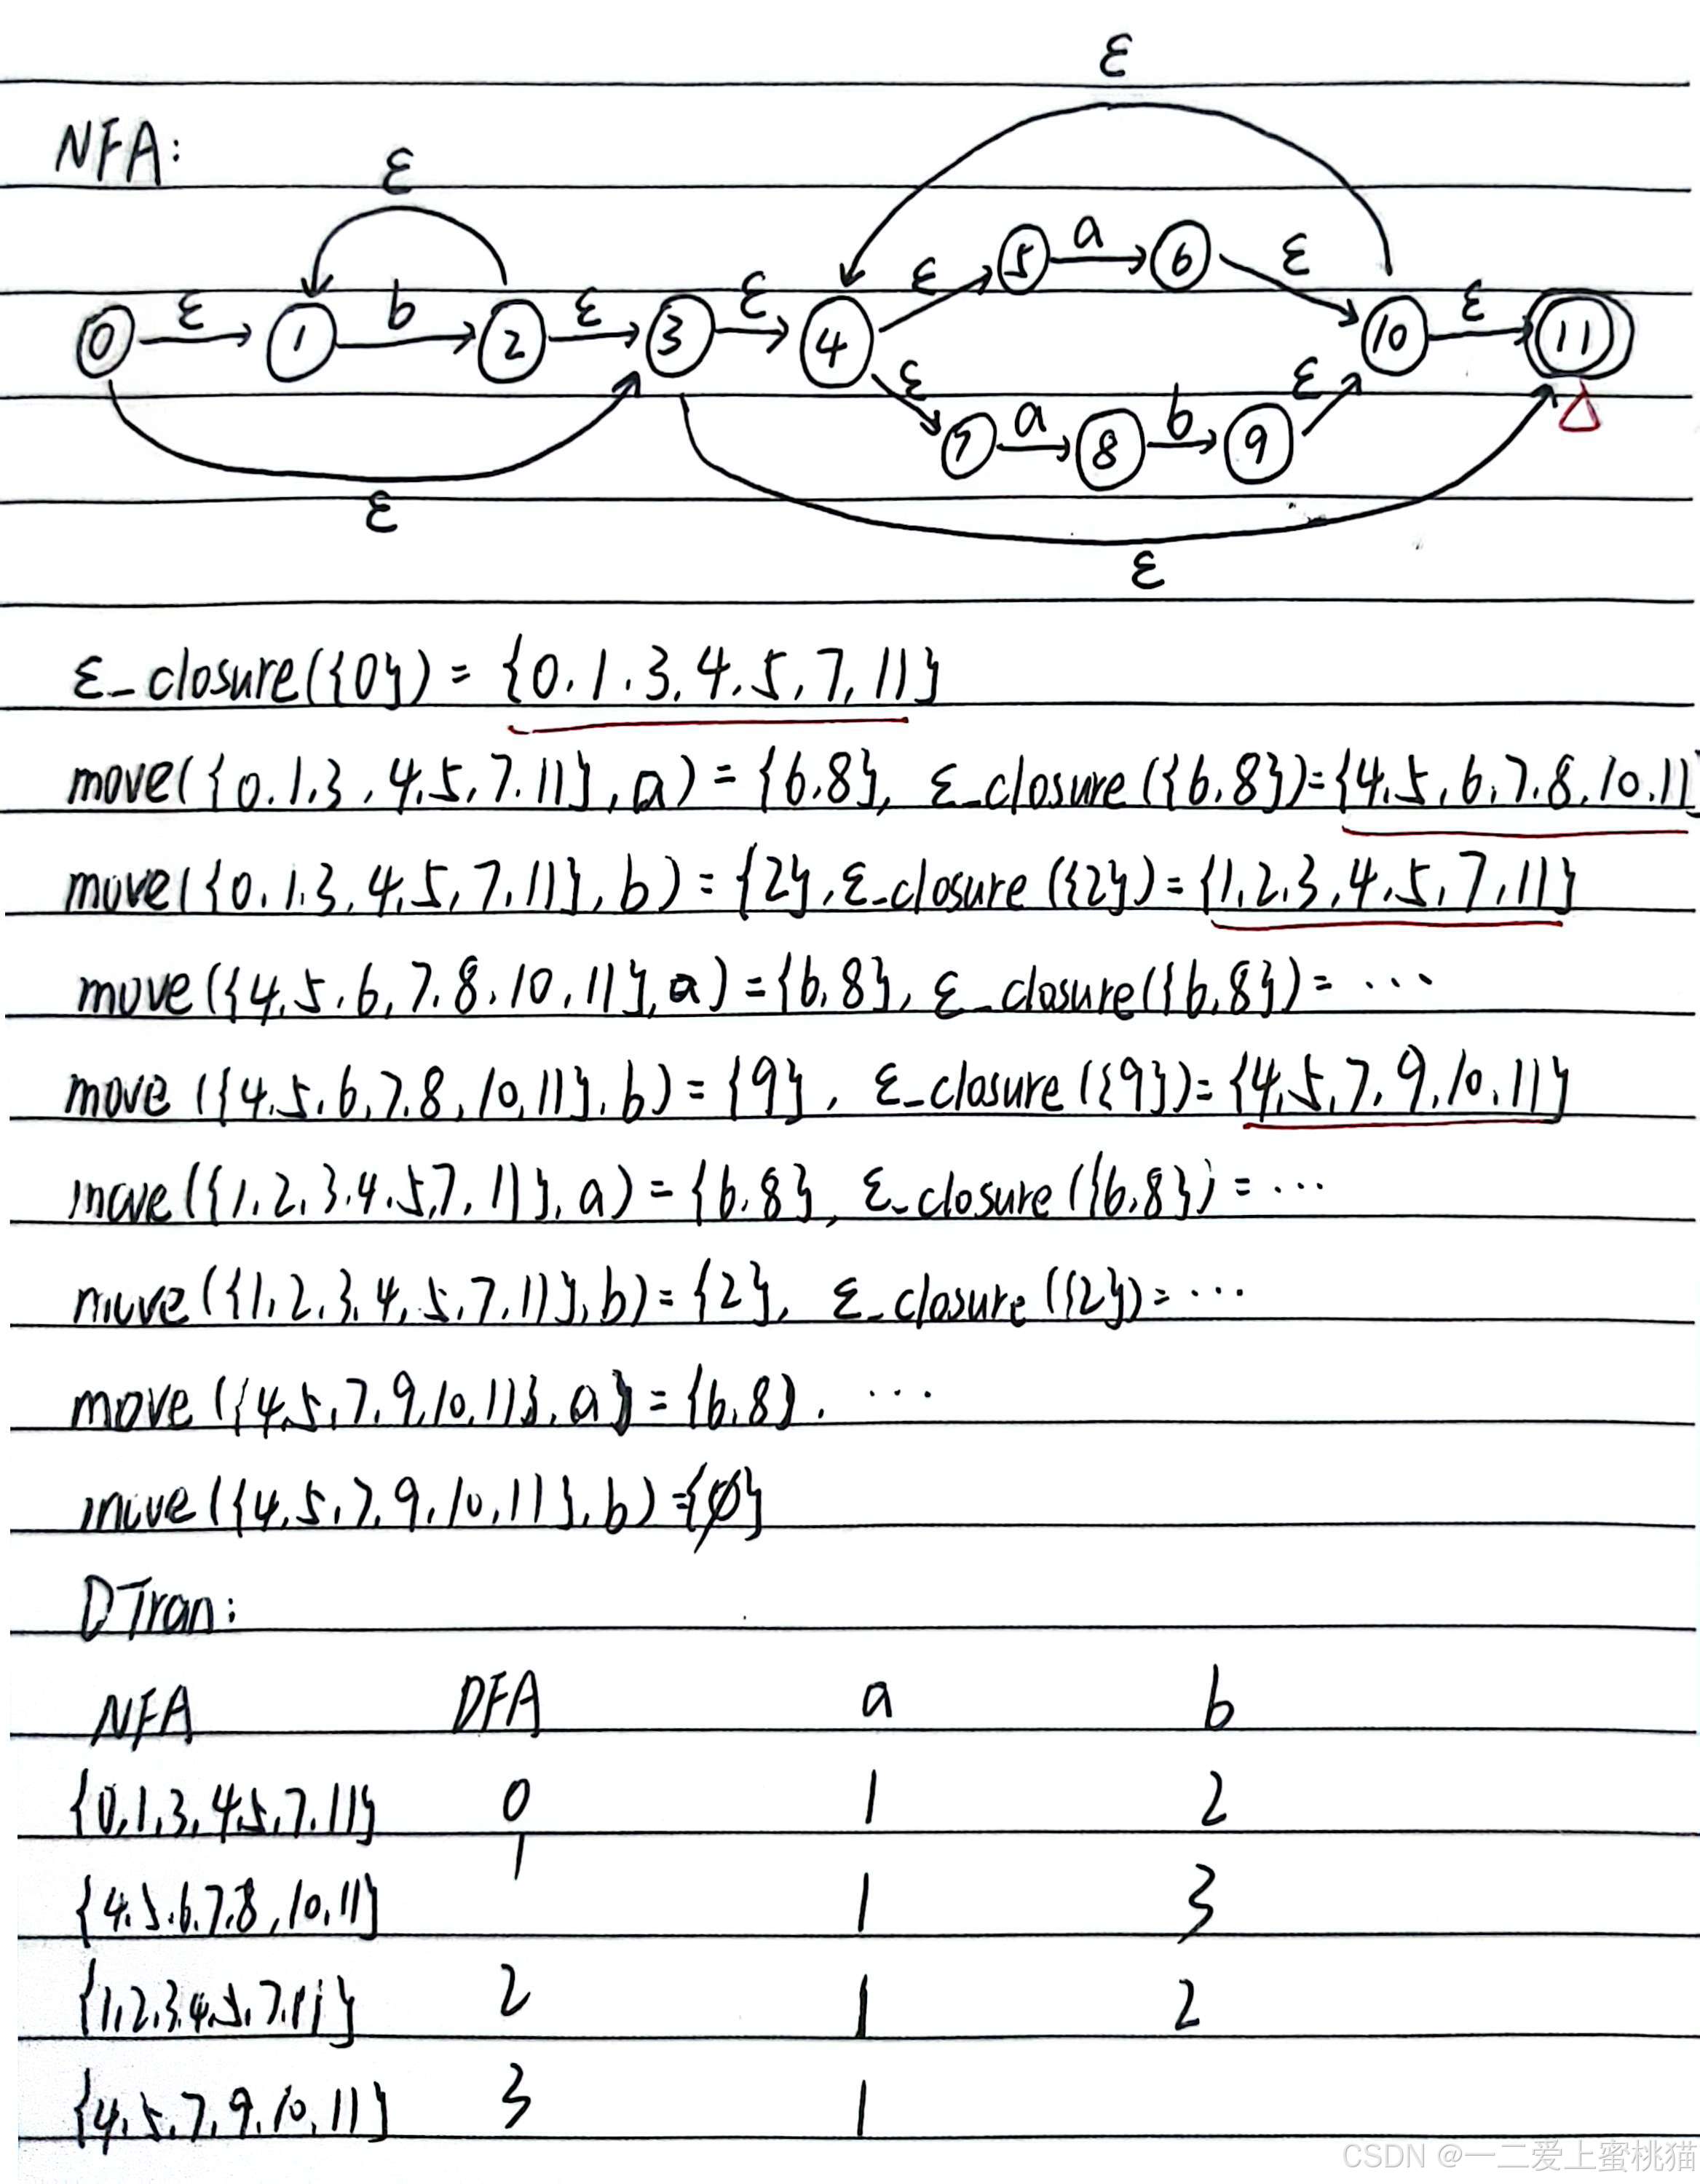 ε
NFA:
ε
5 a 6
ε ε
0 ε 1 b 2 ε 3 ε 4 10 ε 11
ε ε
7 a 8 b 9
ε
ε
ε_closure({0}) = {0.1.3.4.5.7.11}
move({0.1.3.4.5.7.11},a) = {6.8}, ε_closure({6.8})={4.5.6.7.8.10.11}
move({0.1.3.4.5.7.11},b) = {2}, ε_closure({2})={1,2,3,4,5,7,11}
move({4.5.6.7.8.10.11},a)={6.8}, ε_closure({6.8})= ...
move({4.5.6.7.8,10,11},b)={9}, ε_closure({9})={4.5.7.9.10.11}
move({1.2.3.4.5.7.11},a)={6.8}, ε_closure({6.8})=...
move({1.2.3.4.5.7.11},b)={2}, ε_closure({2})=...
move({4.5.7.9.10.11},a)={6.8}. ...
move({4.5.7.9.10.11},b)={∅}
DTran:
NFA DFA a b
{0.1.3.4.5.7.11} 0 1 2
{4.5.6.7.8,10.11} 1 1 3
{1.2.3.4.5.7.11} 2 1 2
{4.5.7.9.10.11} 3 1
CSDN @一二爱上蜜桃猫